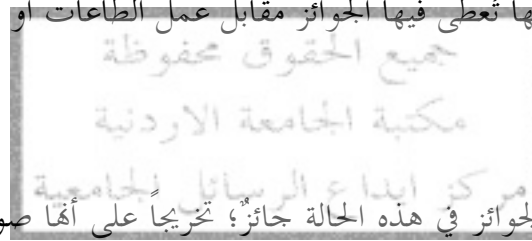 ها تُعطى فيها الجوائز مقابل عمل الطاعات أو
جميع الحقوق محفوظة
مكتبة الجامعة الاردنية
مركز ايداع الرسائل الجامعية
لجوائز في هذه الحالة جائزٌ؛ تخريجاً على أنها صو